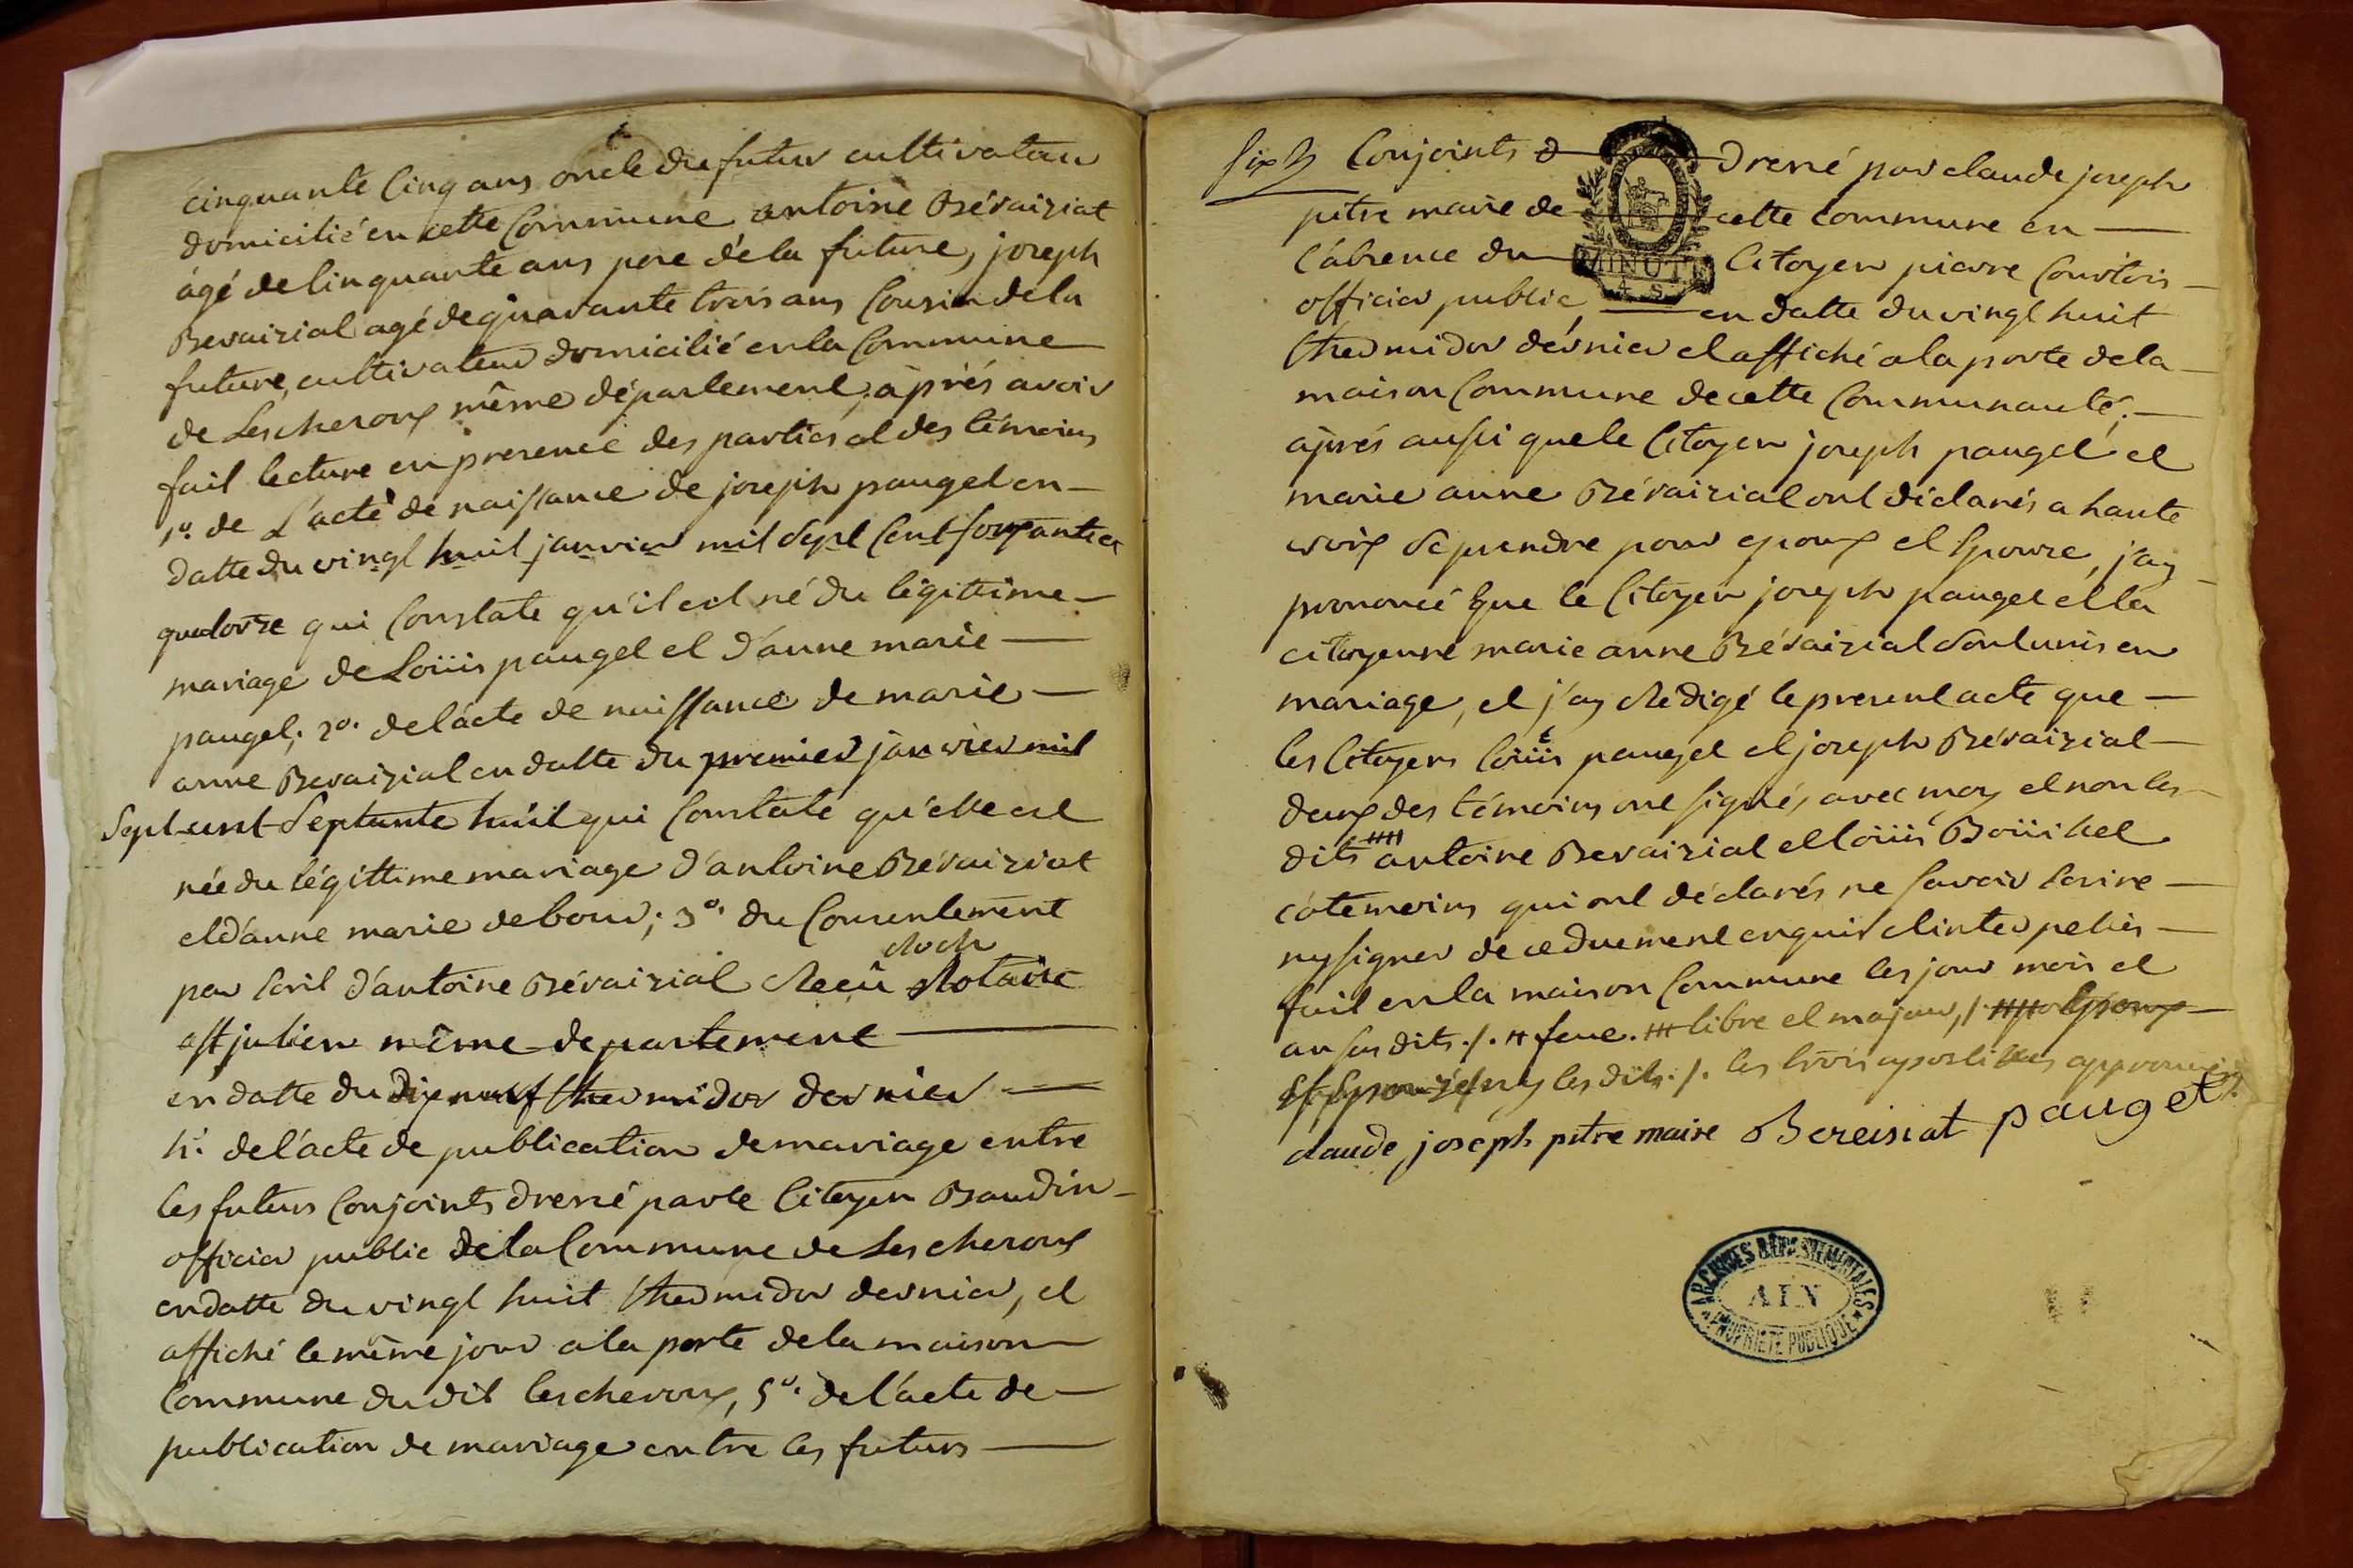 cinquante Cinq ans oncle du futur cultivateur
domicilié en cette Commune antoine Bévaiziat
âgé de Cinquante ans pere dela future, joseph
Bevaizial agé de quarante trois ans Cousin dela
future, cultivateur domicilié en la Commune
de Lescheroux même département, après avoir
fait lecture en presence des parties et des témoins
1º. de L'acte de naissance de joseph pauget en
datte du vingt huit janvier mil sept Cent soixante et
quatorze qui Constate qu'il est né du légittime
mariage de Loüis pauget et d'anne marie
pauget; 2º. de l'acte de naissance de marie
anne Bevaizial en datte du premier janvier mil
Sept cent Septante huit qui Constate qu'elle est
née du légittime mariage d'antoine Bévaiziat
et d'anne marie debour; 3º. du Consentement
par Ecrit d'antoine Bévaizial Recû Notaire
a St julien même departement
en datte du dix neuf thermidor dernier
4º. de l'acte de publication de mariage entre
les futurs Conjoints dressé par le Citoyen Baudin
officier public de la Commune de Lescheroux
en datte du vingt huit thermidor dernier, et
affiché le même jour a la porte de la maison
Commune du dit lescheroux, 5º. de l'acte de
publication de mariage entre les futurs
Conjoints dressé par claude joseph
pitre maire de cette Commune en
l'absence du Citoyen pierre Courtois
officier public, en datte du vingt huit
thermidor dérnier et affiché a la porte de la
maison Commune de cette Communauté;
après aussi que le Citoyen joseph pauget et
marie anne Bévaizial ont déclarés a haute
voix se prendre pour epoux et Epouse, j'ay
prononcé que le Citoyen joseph pauget et la
citoyenne marie anne Bévaizial sont unis en
mariage, et j'ay Redigé le present acte que
les Citoyens loüis pauget et joseph Bévaizial
deux des témoins ont signés avec moy et non les
dits antoine Bevaizial et loüis Boüihet
cotemoins qui ont déclarés ne savoir Ecrire
ny signer de ce duement enquis et interpellés
fait en la maison Commune les jour mois et
an sus dits ./. # feue. ### libre et majeur, /.
ny les dits ./. les trois apostilles approuvées
claude joseph pitre maire Bereisiat pauget
MINUTE
4. S.
ARCHIVES DÉPARTEMENTALES
AIN
PROPRIÉTÉ PUBLIQUE